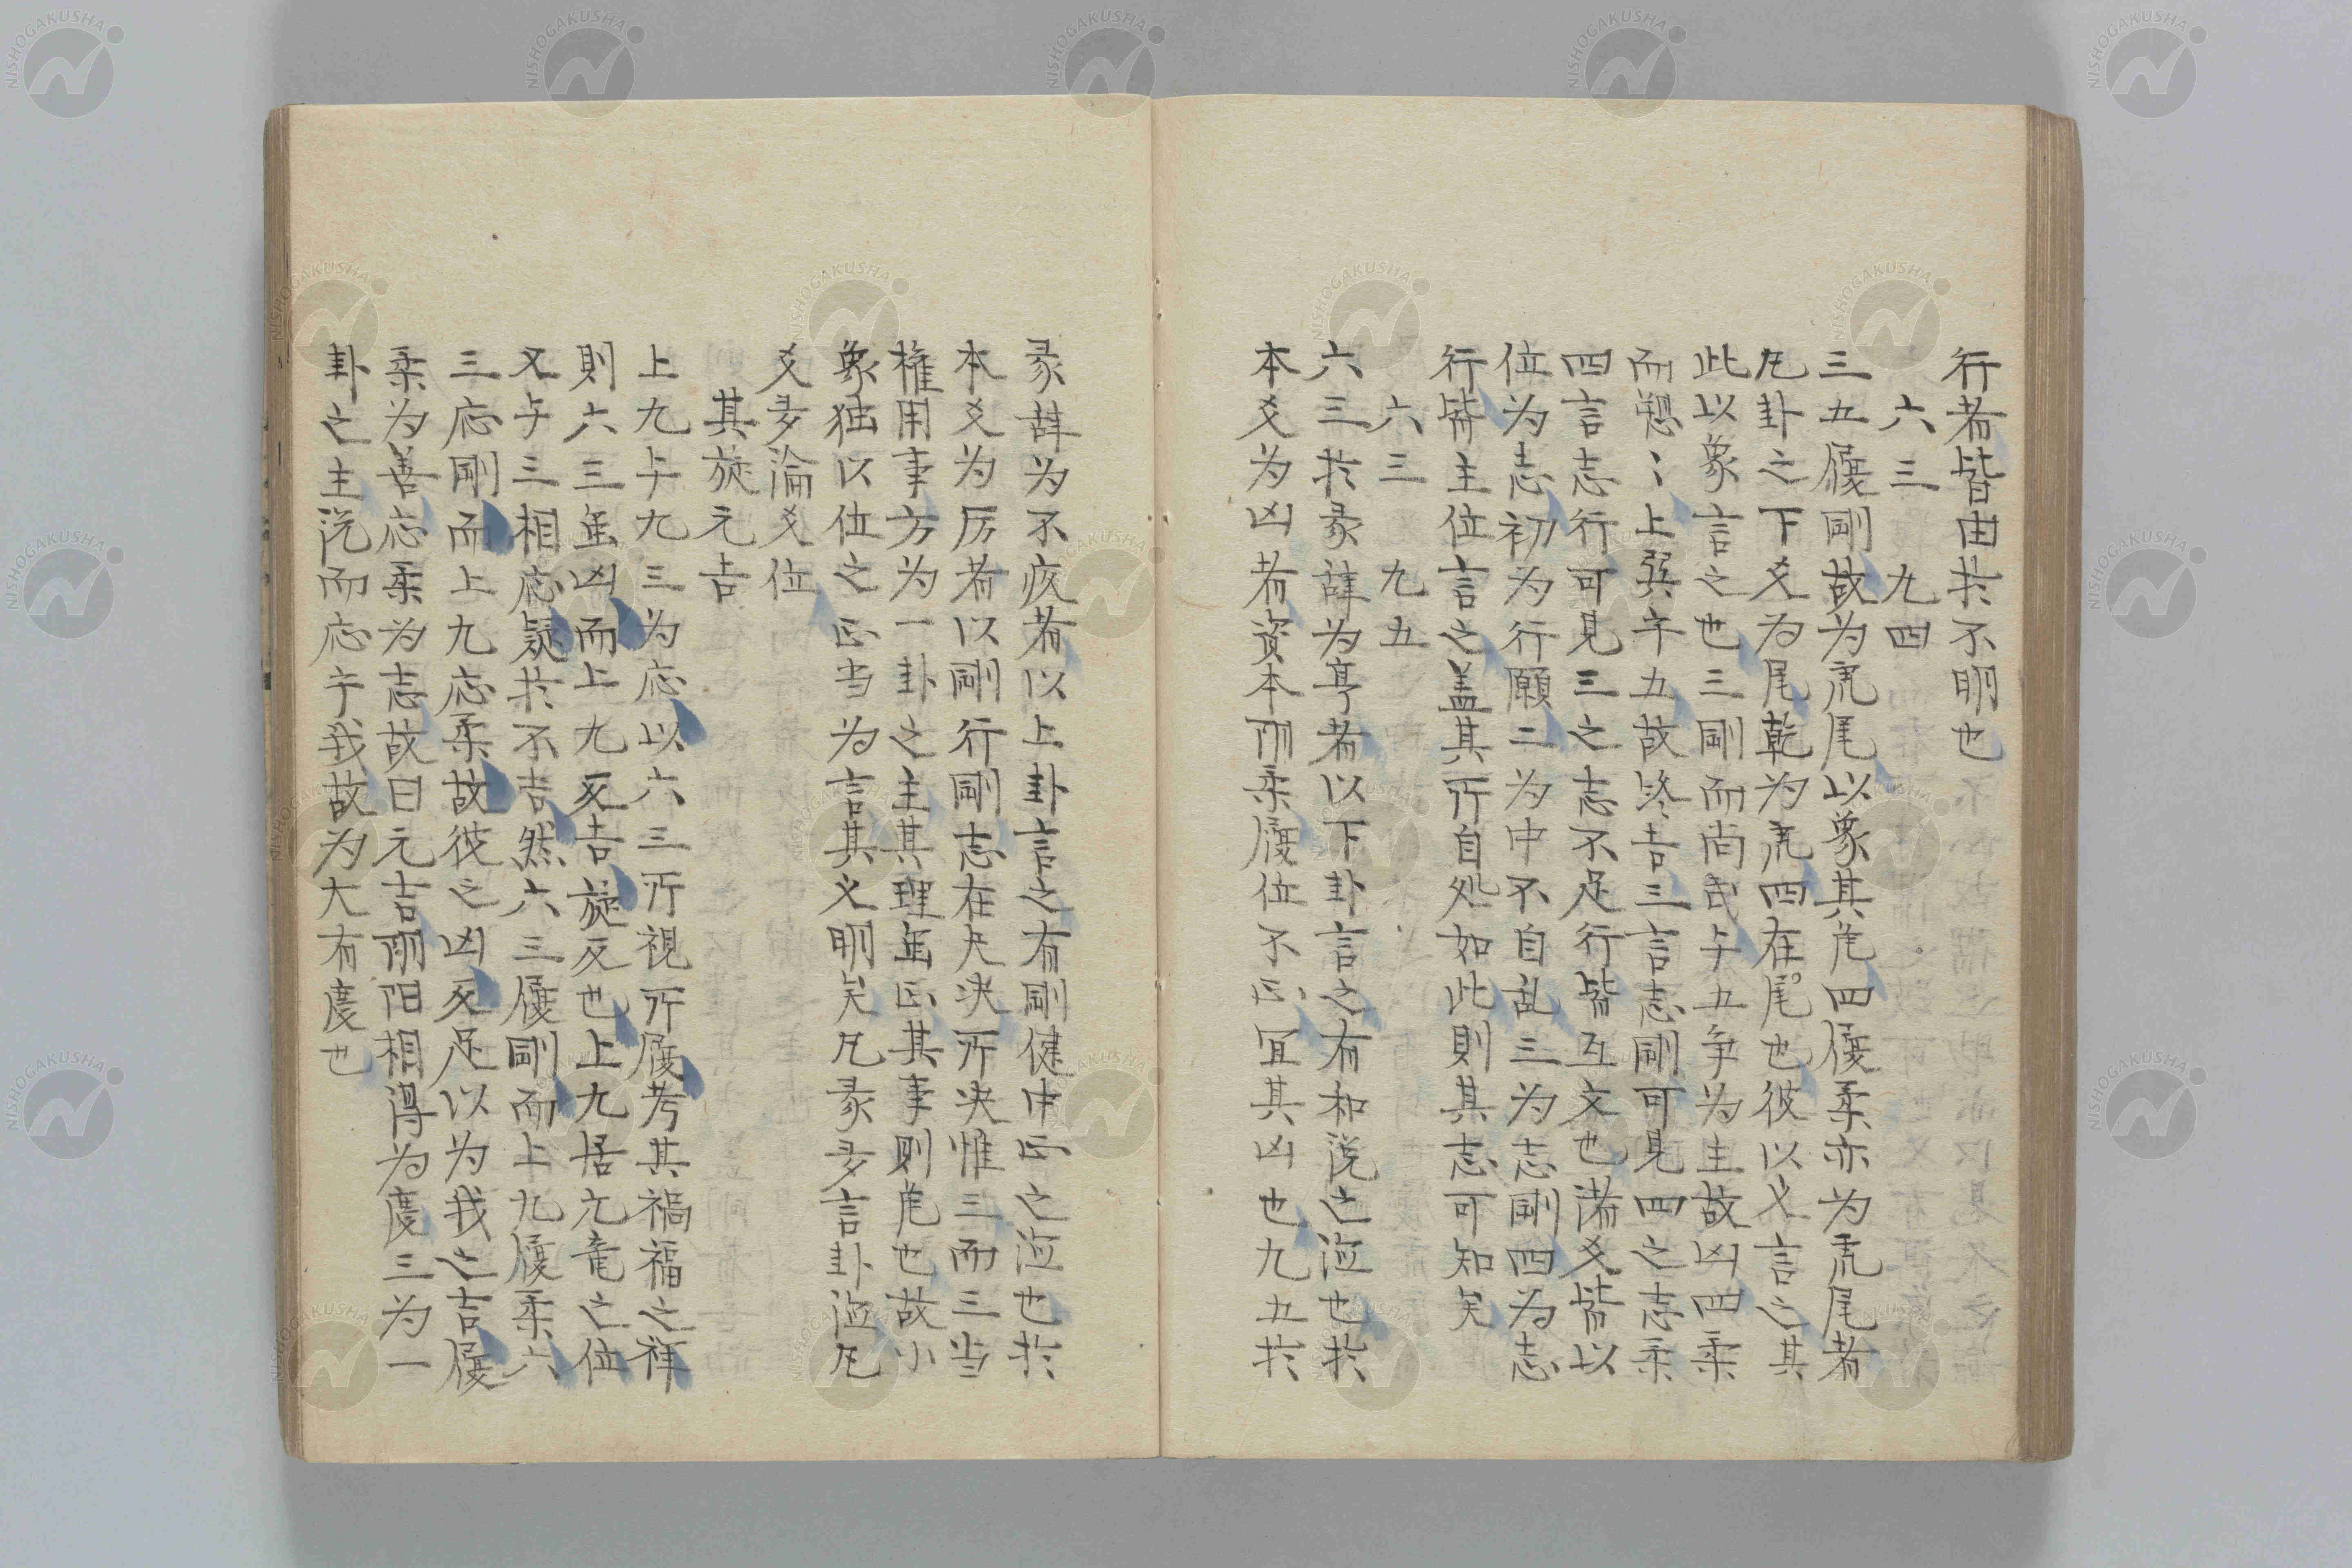 行者皆由於不明也
六三　九四
三五履剛故為虎尾以象其危四履柔亦為虎尾者
凡卦之下爻為尾乾為虎四在尾也彼以义言之其
此以象言之也三剛而尚武与五争為主故凶四柔
而愬〻上巽乎五故终吉三言志剛可見四之志柔
四言志行可見三之志不足行皆互文也満爻皆以
位为志初为行願二为中不自乱三为志剛四为志
行皆主位言之盖其所自処如此則其志可知矣
六三　九五
六三於彖辞为亨者以下卦言之有和説之淂也於
本爻为凶者資本陰柔履位不正冝其凶也九五於
彖辞为不疚者以上卦言之有剛健中正之淂也於
本爻为厉者以剛行剛志在夬决所决惟三而三当
権用事方为一卦之主其理虽正其事则危也故小
象独以位之正当为言其义明矣凡彖多言卦淂凡
爻多論爻位
其旋元吉
上九与九三为応以六三所視所履考其禍福之祥
則六三虽凶而上九反吉旋反也上九居亢竜之位
又与三相応疑於不吉然六三履剛而上九履柔六
三応剛而上九応柔故彼之凶反足以为我之吉履
柔为善応柔为志故曰元吉陰阳相得为慶三为一
卦之主説而応乎我故为大有慶也